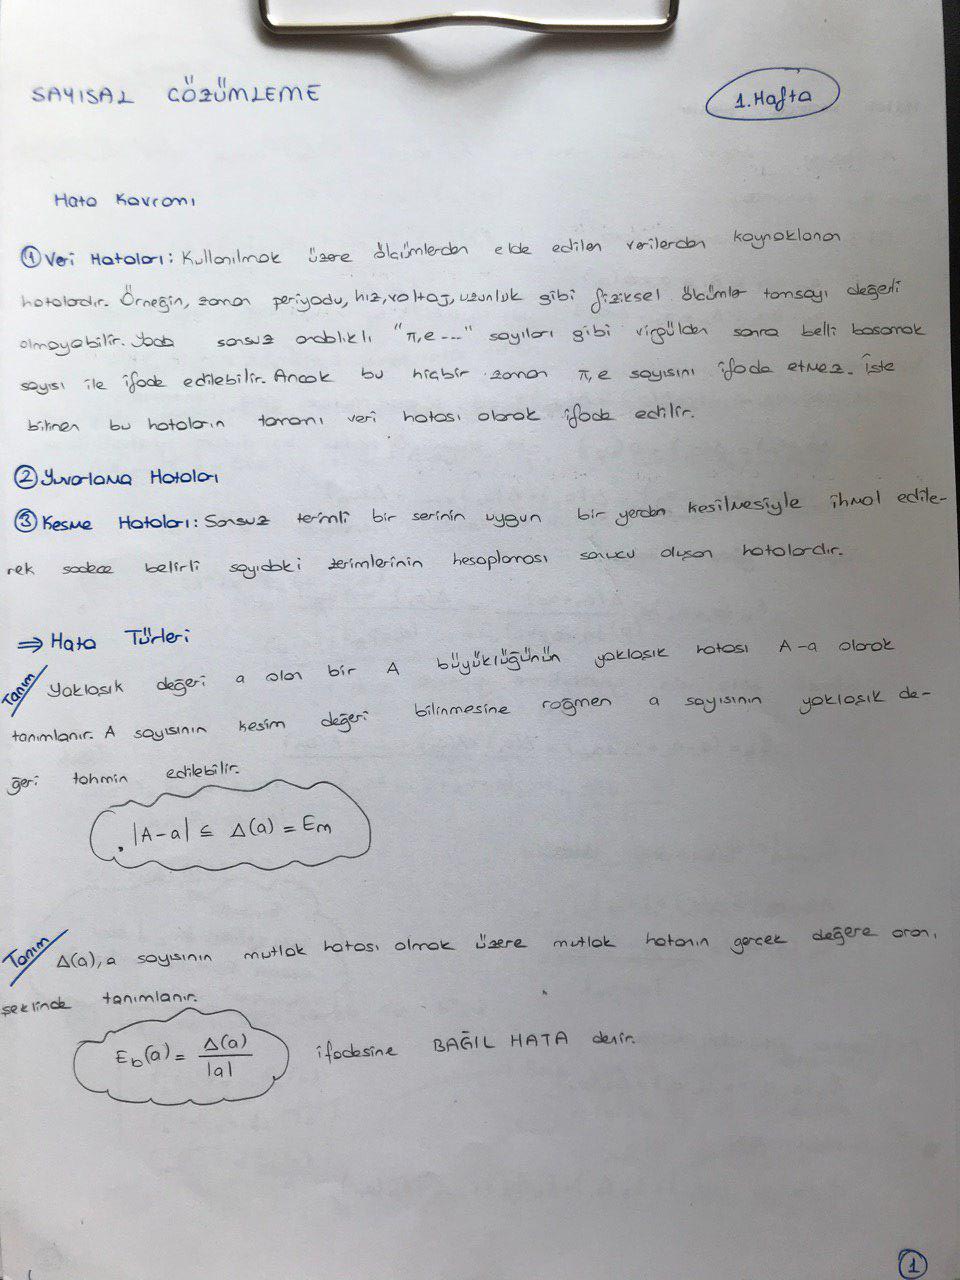 SAYISAL ÇÖZÜMLEME
1.Hafta
Hata Kavramı
① Veri Hataları: Kullanılmak üzere ölçümlerden elde edilen verilerden kaynaklanan
hatalardır. Örneğin, zaman periyodu, hız, voltaj, uzunluk gibi fiziksel ölçümler tamsayı değerli
olmayabilir. Yada sonsuz ondalıklı "π,e---" sayıları gibi virgülden sonra belli basamak
sayısı ile ifade edilebilir. Ancak bu hiçbir zaman π,e sayısını ifade etmez. İşte
bilinen bu hataların tamamı veri hatası olarak ifade edilir.
② Yuvarlama Hataları
③ Kesme Hataları: Sonsuz terimli bir serinin uygun bir yerden kesilmesiyle ihmal edile-
rek sadece belirli sayıdaki terimlerinin hesaplaması sonucu oluşan hatalardır.
⇒ Hata Türleri
Tanım Yaklaşık değeri a olan bir A büyüklüğünün yaklaşık hatası A-a olarak
tanımlanır. A sayısının kesim değeri bilinmesine rağmen a sayısının yaklaşık de-
ğeri tahmin edilebilir.
|A-a| ≤ Δ(a) = Em
Tanım Δ(a), a sayısının mutlak hatası olmak üzere mutlak hatanın gerçek değere oranı
şeklinde tanımlanır.
Eb(a) = Δ(a)/|a| ifadesine BAĞIL HATA denir.
1